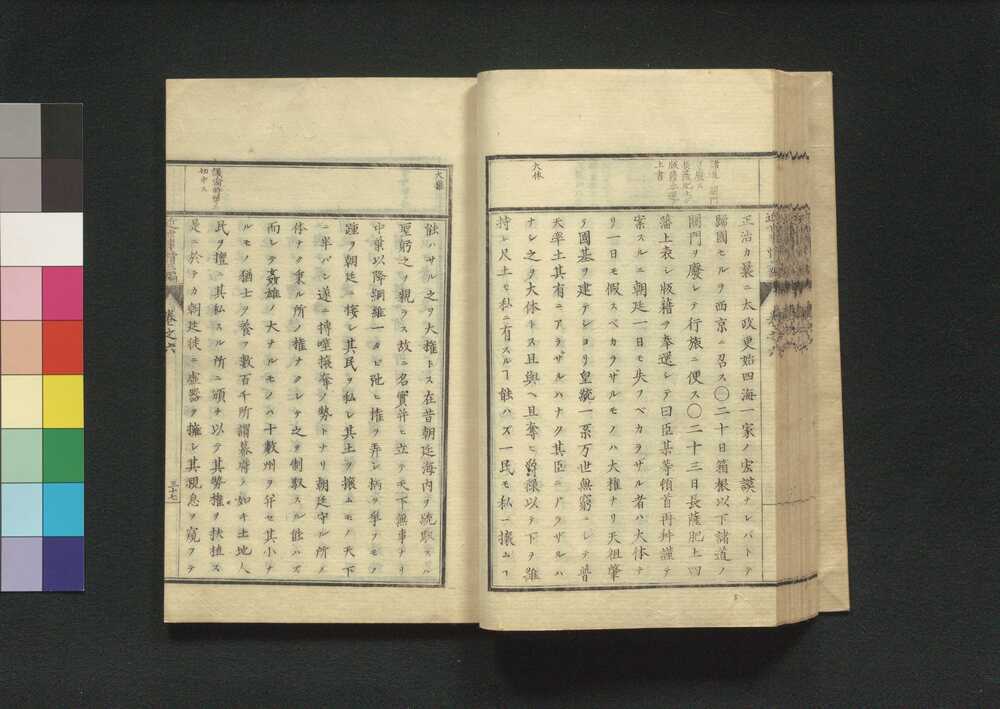 諸道ノ関門
ヲ廢ス
長薩肥土ノ
版籍奉還ノ
上書
正治カ曩ニ太政更始四海一家ノ宏謨ナレバトテ
歸國セルヲ西京ニ召ス〇二十日箱根以下諸道ノ
關門ヲ廢シテ行旅ニ便ス〇二十三日長薩肥土四
藩上表シ版籍ヲ奉還シテ曰臣某等頓首再拜謹テ
案スルニ朝廷一日モ失フベカラザル者ハ大体ナ
リ一日モ假スベカラザルモノハ大權ナリ天祖肇
テ國基ヲ建テシヨリ皇統一系万世無窮ニシテ普
天率土其有ニアラザルハナク其臣ニアラザルハ
大体
ナシ之ヲ大体トス且與ヘ且奪ヒ爵祿以テ下ヲ維
持シ尺土モ私ニ有スルヿ能ハズ一民モ私ニ攘ムヿ
大權
能ハサル之ヲ大權トス在昔朝廷海内ヲ統馭スル
聖躬之ヲ親ラス故ニ名實并ヒ立テ天下無事ナリ
中葉以降綱維一タビ弛ヒ權ヲ弄シ柄ヲ爭フモノ
踵ヲ朝廷ニ接シ其民ヲ私シ其土ヲ攘ムモノ天下
ニ半バシ遂ニ搏噬攘奪ノ勢トナリ朝廷守ル所ノ
体ナク秉ル所ノ權ナクシテ之ヲ制馭スル能ハズ
而シテ姦雄ノ大ナルモノハ十數州ヲ并セ其小ナ
ルモノ猶士ヲ養フ數百千所謂幕府ノ如キ土地人
切中ス
民ヲ擅ニ其私スル所ニ頒チ以テ其勢權ヲ扶植ス
是ニ於テカ朝廷徒ニ虚器ヲ擁シ其視息ヲ窺フテ
近世事情五編
卷之六
三十七